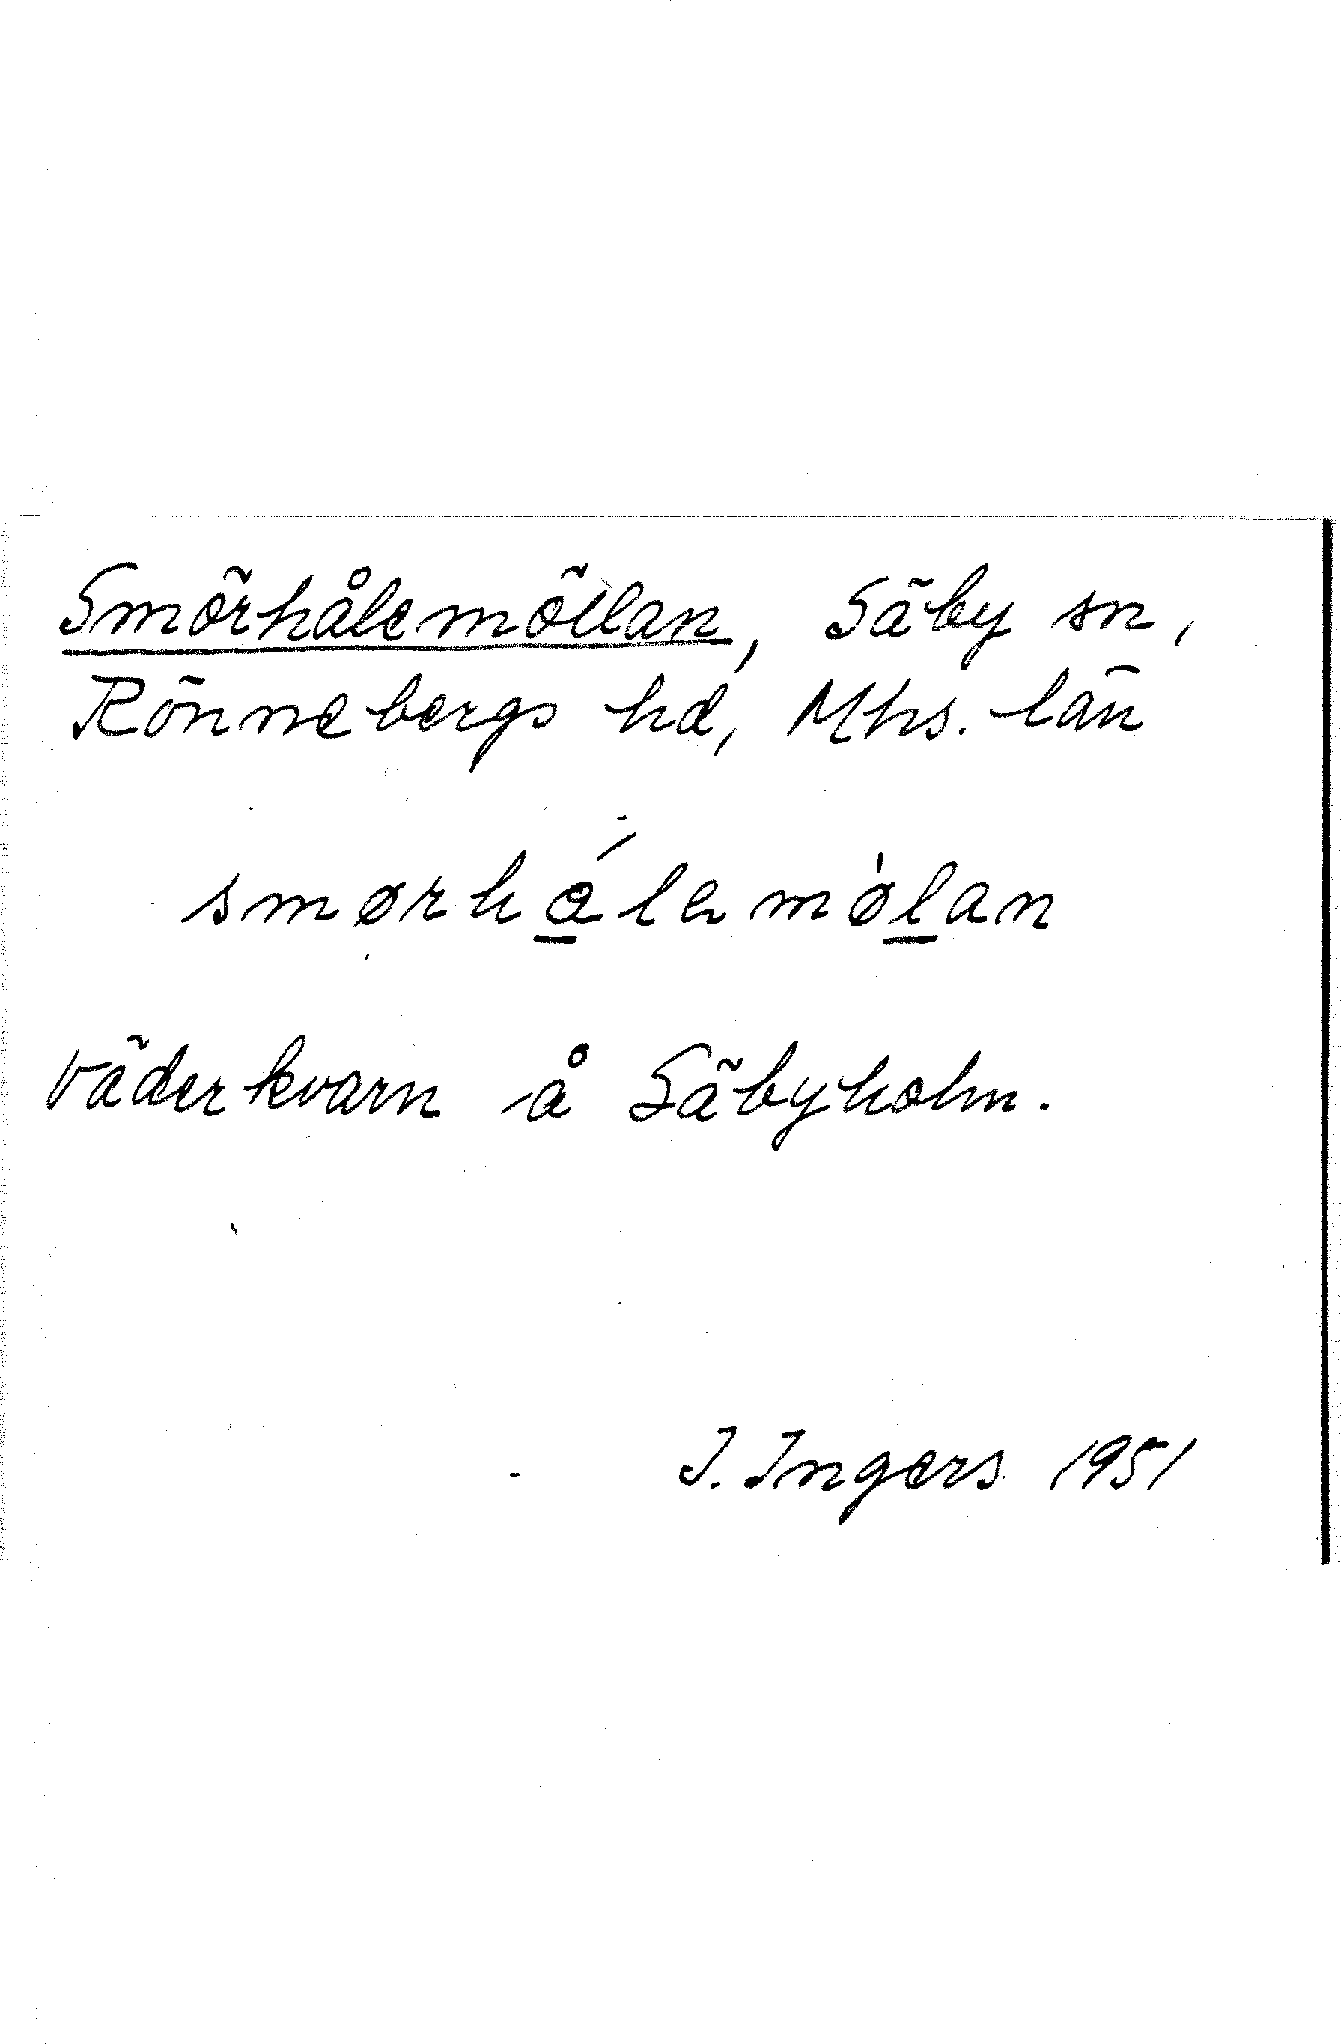 Smörhålemöllan, Säby sn,
Rönnebergs hd, Mhs. län
smørhålemølan
väderkvarn å Säbyholm.
I. Ingers 1951